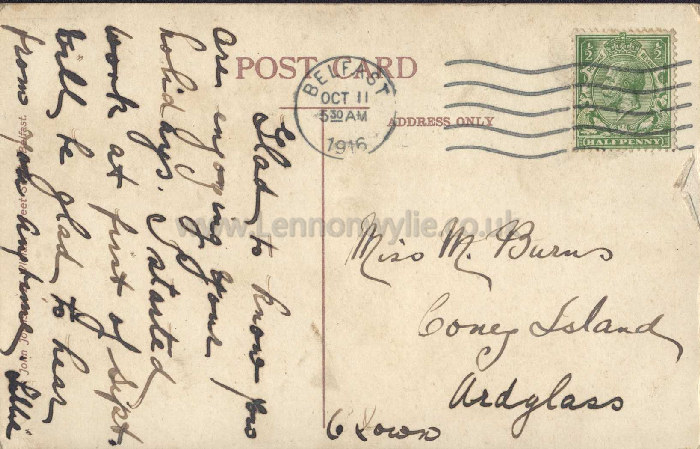 POST CARD
ADDRESS ONLY
BELFAST
OCT 11
5 30 AM
1916
½ ½
HALFPENNY
Glad to know you
are enjoying your
holidays. I started
work at first of Sept.
Will be glad to hear
from you anytime. Lillie
Miss M. Burns
Coney Island
Ardglass
Co Down
John
Belfast.
www.Lennonwylie.co.uk